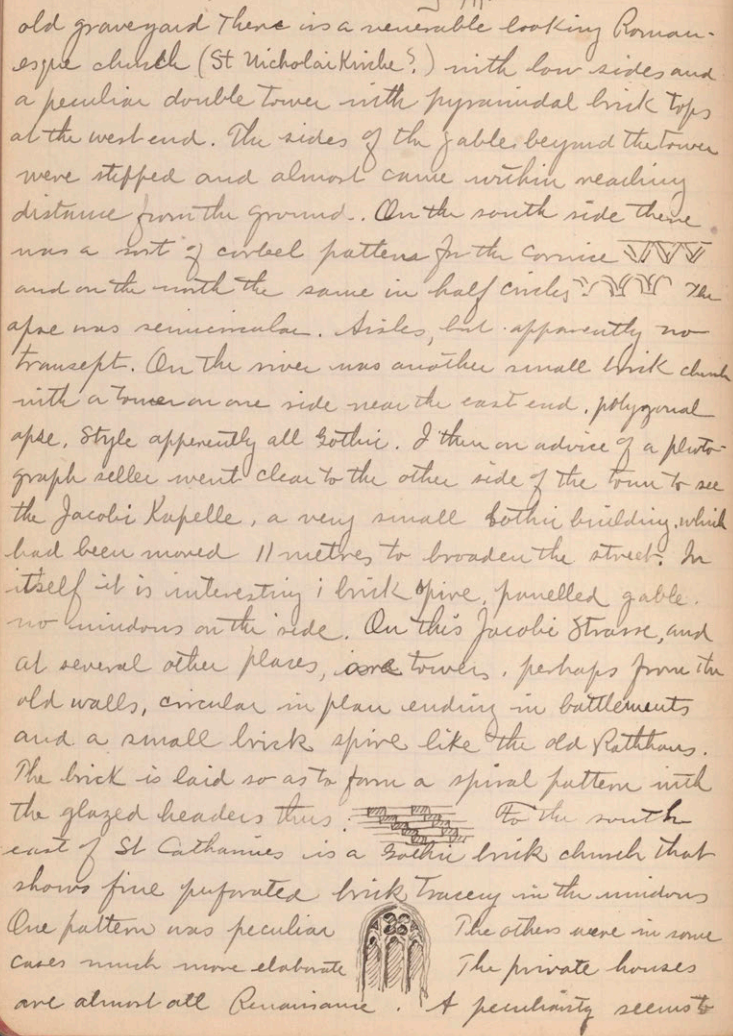 old graveyard There is a venerable looking Roman-
esque church (St Nicholai Kirche?) with low sides and
a peculiar double tower with pyramidal brick tops
at the west end. The sides of the gables beyond the tower
were stepped and almost came within reaching
distance from the ground. On the south side there
was a sort of corbel pattern for the cornice
and on the north the same in half circles The
apse was semicircular. Aisles, but apparently no
transept. On the river was another small brick church
with a tower on one side near the east end, polygonal
apse. Style apparently all Gothic. I then on advice of a photo-
graph seller went clear to the other side of the town to see
the Jacobi Kapelle, a very small Gothic building, which
had been moved 11 metres to broaden the street. In
itself it is interesting; brick spire, panelled gable.
no windows on the side. On this Jacobi Strasse, and
at several other places, are towers, perhaps from the
old walls, circular in plan ending in battlements
and a small brick spire like the old Rathhaus.
The brick is laid so as to form a spiral pattern with
the glazed headers thus: To the south
east of St Catharines is a Gothic brick church that
shows fine perforated brick tracery in the windows
One pattern was peculiar The others were in some
cases much more elaborate The private houses
are almost all Renaissance. A peculiarity seems to